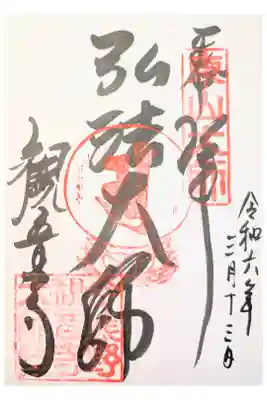 奉拝
令和六年
三月十三日
弘法大師
観音寺